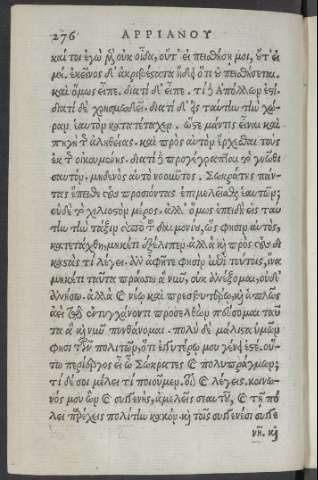 276 ΑΡΡΙΑΝΟΥ
καί τοι ἐγὼ μὲν οὐκ οἶδα, οὔτ' εἰ πεισθήσῃ μοι, οὔτ' εἰ
μή. ἐκεῖνος δ' ἀκριβέστατα ᾔδει ὅτι οὐ πεισθήσεται.
καὶ ὅμως εἶπε. διατί δ' εἶπε. τί ἢ Ἀπόλλων ἐστί.
διατί δὲ χρησμῳδεῖ. διατί δ' εἰς ταύτην τὴν χώ-
ραν ἑαυτὸν κατατέταχεν. ὥστε μάντις εἶναι καὶ
πηγὴ τῆς ἀληθείας. καὶ πρὸς αὐτὸν ἔρχεσθαι τοὺς
ἐκ τῆς οἰκουμένης. διατί ἢ προγέγραπται τὸ γνῶθι
σεαυτόν. μηδενὸς αὐτὸ νοοῦντος. Σωκράτης πάν-
τας ἔπειθε τοὺς προσιόντας ἐπιμελεῖσθαι ἑαυτῶν;
οὐδὲ τὸ χιλιοστὸν μέρος. ἀλλ' ὅμως ἐπειδὴ εἰς ταύ
την τὴν τάξιν ὑπὸ τοῦ δαιμονίου, ὥς φησιν αὐτὸς,
κατετάχθη, μηκέτι ἐξέλιπεν. ἀλλὰ καὶ πρὸς τοὺς δι
καστὰς τί λέγει. ἂν ἀφῆτε φησὶν μὲ ἐπὶ τούτοις, ἵνα
μηκέτι ταῦτα πράσσω ἃ νῦν, οὐκ ἀνέξομαι, οὐδὲ
ἀνήσω. ἀλλὰ καὶ νέῳ καὶ πρεσβυτέρῳ, καὶ ἁπλῶς
ἀεὶ τῷ ἐντυγχάνοντι προσελθὼν πεύσομαι ταῦ
τα ἃ καὶ νῦν πυνθάνομαι. πολὺ δὲ μάλιστα ὑμῶν
φησὶ τῶν πολιτῶν, ὅτι ἐγγυτέρω μου γένει ἐστέ. οὕ-
τω περίεργος εἶ ὦ Σώκρατες καὶ πολυπράγμων;
τί δέ σοι μέλει τί ποιοῦμεν. οἷον καὶ λέγεις. κοινω-
νός μου ὢν καὶ συγγενὴς, ἀμελεῖς σεαυτοῦ, καὶ τῇ πό
λει παρέχεις πολίτην κακόν. καὶ τοῖς συγγενέσι συγγε
νῆ. καὶ